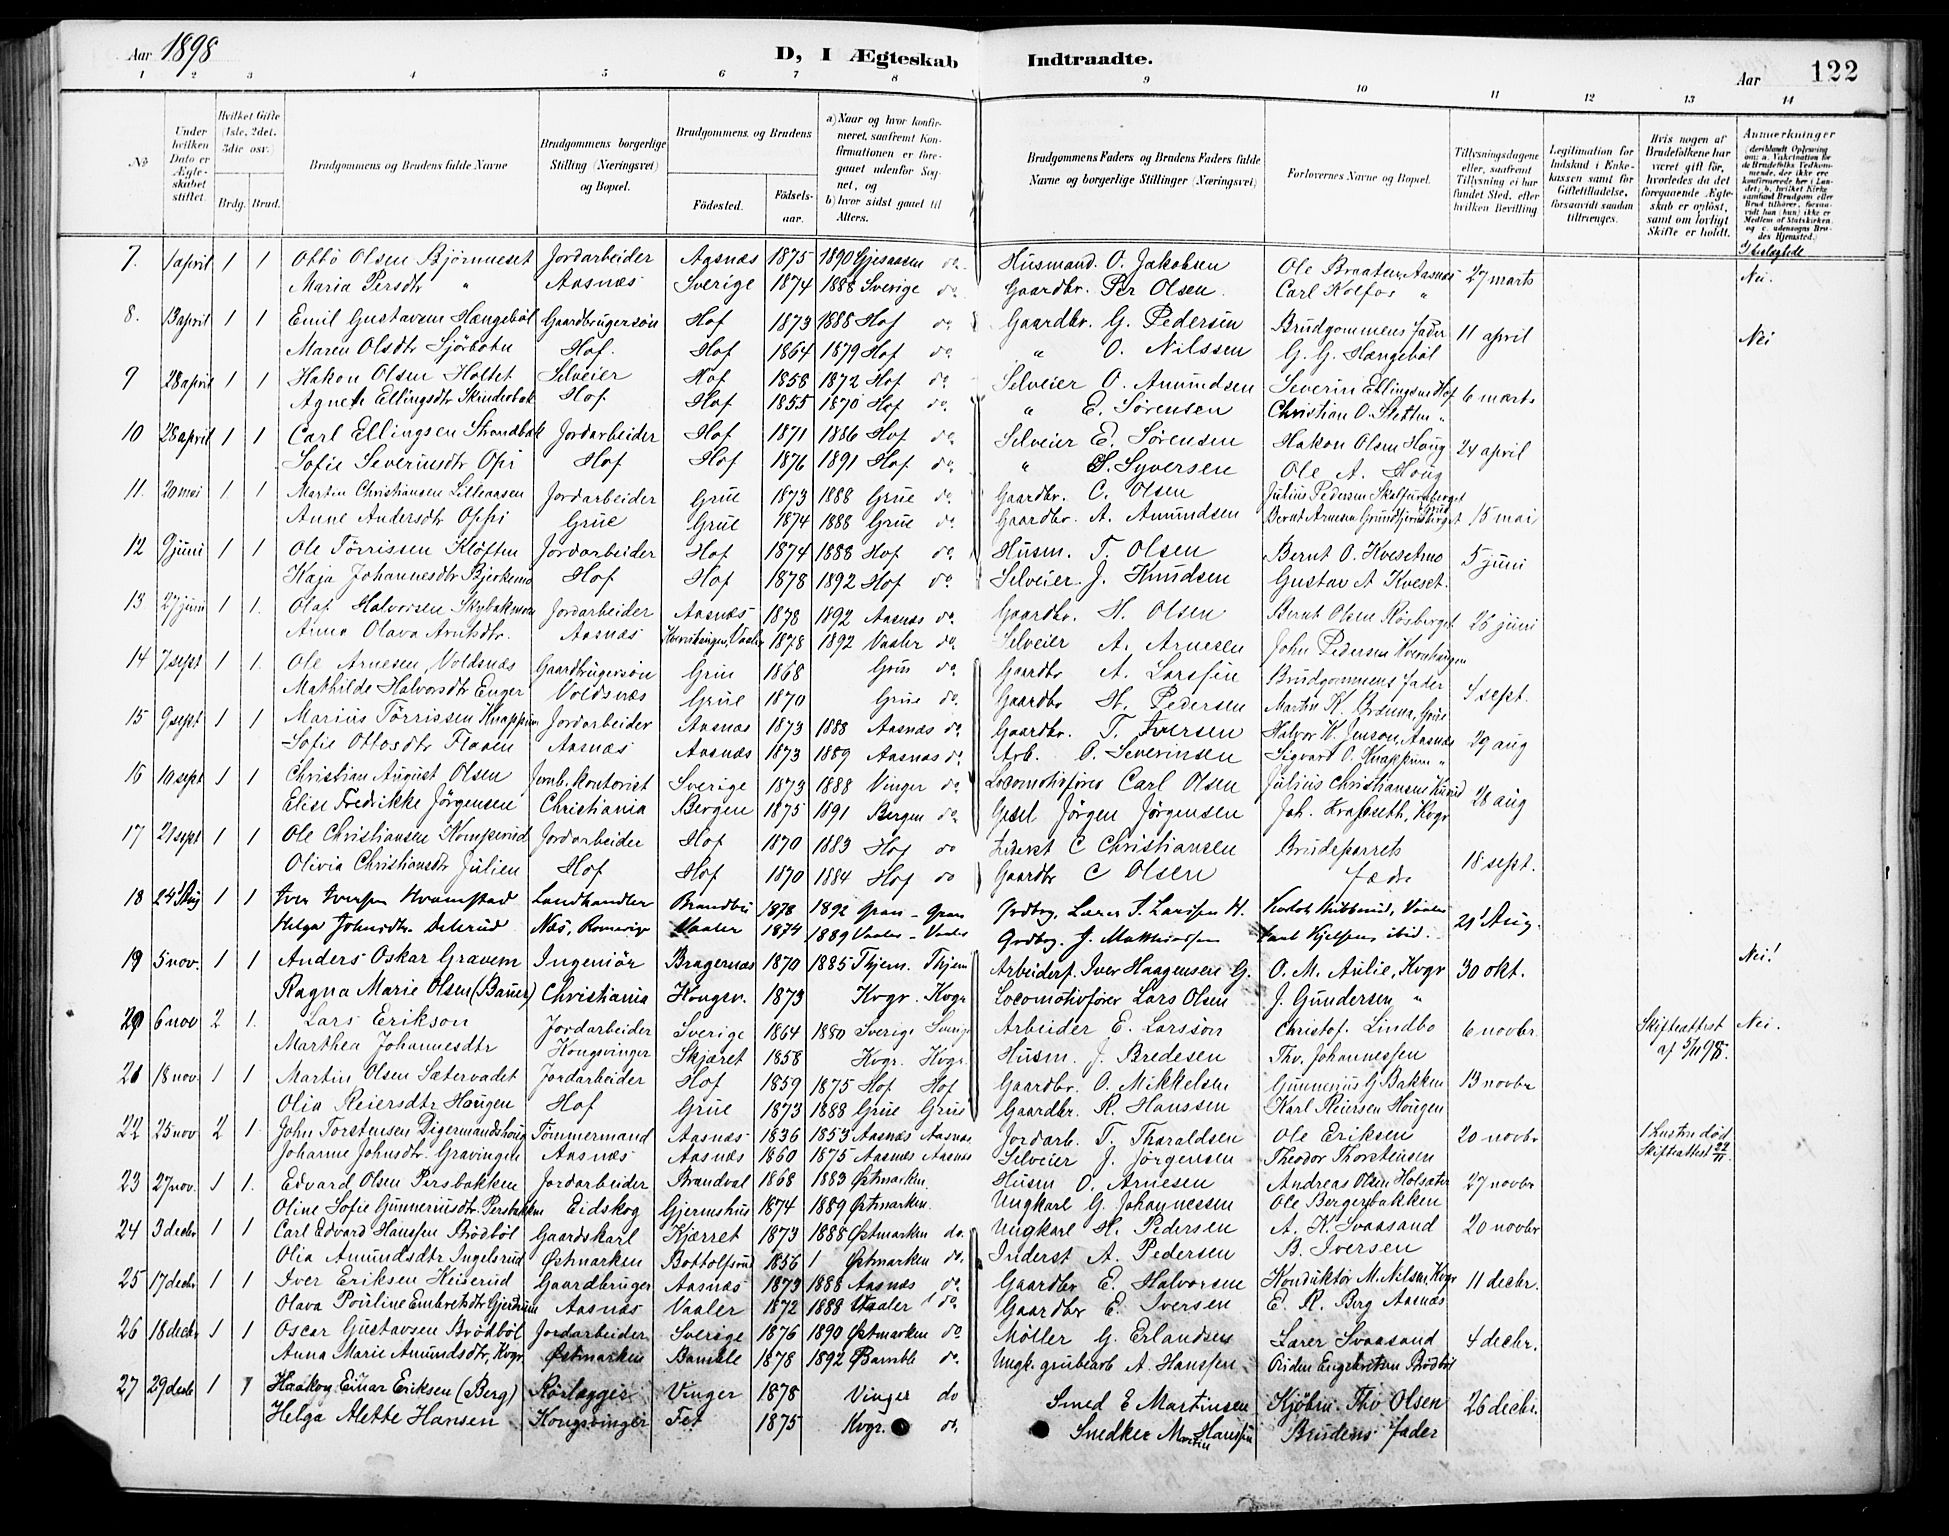 Aar 1898
D, I Ægteskab Indtraadte.
Aar 122
1 2 3 4 5 6 7 8 9 10 11 12 13 14
№
Under hvilken Dato er Ægteskabet stiftet.
Hvilket Gifte (1ste, 2det, 3die osv.)
Brdg. Brud.
Brudgommens og Brudens fulde Navne
Brudgommens borgerlige Stilling (Næringsvei) og Bopæl.
Brudgommens og Brudens
Fødested. Fødselsaar.
a) Naar og hvor konfirmeret, saafremt Konfirmationen er foregaaet udenfor Sognet, og
b) hvor sidst gaaet til Alters.
Brudgommens Faders og Brudens Faders fulde Navne og borgerlige Stillinger (Næringsvei)
Forlovernes Navne og Bopæl.
Tillysningsdagene eller, saafremt Tillysning ei har fundet Sted, efter hvilken Bevilling
Legitimation for Indskud i Enkekassen samt for Giftetilladelse, forsaavidt saadan tiltrænges.
Hvis nogen af Brudefolkene har været gift før, hvorledes da det foregaaende Ægteskab er opløst, samt om lovligt Skifte er holdt.
Anmærkninger
7. 1 april 1 1 Otto Olsen Bjørneset Jordarbeider Aasnæs 1875 1890 Gjesaasen do. Husmand. O. Jakobsen Ole Braaten, Aasnæs 27 marts
Maria Persdtr " Aasnæs Sverige 1874 1888 Sverige do. Gaardbr. Per Olsen. Carl Kolfos " Nei.
8. 13 april 1 1 Emil Gustavsen Hængebøl Gaardbrugersøn Hof 1873 1888 Hof do Gaardbr. G. Pedersen Brudgommens Fader 11 april
Maren Olsdtr Sjørbotn Hof. Hof 1864 1879 Hof do. " O. Nilssen G. G. Hængebøl Nei
9 28 april 1 1 Hakon Olsen Holtet Selveier Hof 1858 1872 Hof do. Selveier O. Amundsen Severin Ellingsen Hof 6 marts
Agnete Ellingsdtr Skinderbak Hof Hof 1855 1870 Hof do. " E. Sørensen Christian O. Sletten "
10 28 april 1 1 Carl Ellingsen Strandbak Jordarbeider Hof 1871 1886 Hof do Selveier E. Sørensen Hakon Olsen Haug 24 april
Sofie Severinsdtr Opsi Hof Hof 1876 1891 Hof do. " S. Syversen Ole A. Haug
11. 20 mai 1. 1 Martin Christiansen Lilleaasen Jordarbeider Grue 1873 1888 Grue do. Gaardbr. C. Olsen Julius Pedersen
Anne Andersdtr Oppi Grue Grue 1874 1888 Grue do. Gaardbr. A. Amundsen Bernt Arnesen 15 mai
12 9 juni 1 1 Ole Tørrissen Kløften Jordarbeider Hof 1874 1888 Hof do. Husm. T. Olsen Bernt O. Kvesetmo 5 juni
Kaja Johannesdtr Bjerkemo Hof Hof 1878 1892 Hof do Selveier. J. Knudsen Gustav A Kveset.
13 27 juni 1 1. Olaf Halvorsen Skybakmoen Jordarbeider Aasnæs 1878 1892 Aasnæs do. Gaardbr. H. Olsen Bernt Olsen Røsberget 26 juni
Anna Olava Arntsdtr. Aasnæs Kvernhaugen, Vaaler 1878 1892 Vaaler do. Selveier A. Arnesen John Pedersen Kvernhaugen
14 7 sept 1 1. Ole Arnesen Voldsnæs Gaardbrugersøn Grue 1868 Grue do. Gaardbr A. Larssen Brudgommens Fader 4 sept.
Mathilde Halvorsdtr Enger Voldsnæs Grue 1870 Grue do. Gaardbr H. Pedersen Martin K. Grue
15 9 sept 1 1 Marius Tørrissen Knappum Jordarbeider Aasnæs 1873 1888 Aasnæs do. Gaardbr. T. Iversen Halvor K. Aasnæs 29 aug
Sofie Ottosdtr Flaaen Aasnæs Aasnæs 1873 1889 Aasnæs do. Arb. O. Severinsen Sigvard O. Knappum "
16 10 sept 1 1 Christian August Olsen Jernb. kontorist Sverige 1873 1888 Vinger do Locomotivfører Carl Olsen Julius Christiansen 28 aug
Elise Fredrikke Jørgensen Christiania Bergen 1875 1891 Bergen do. Gesel Jørgen Jørgensen Joh. Kvgr
17 21 sept 1 1 Ole Christiansen Komperud Jordarbeider Hof 1870 1883 Hof do Inderst C Christiansen Brudeparrets 18 sept.
Olivia Christiansdtr Julien Hof Hof 1870 1884 Hof do Gaardbr C Olsen Fædre
18 24 Aug 1 1 Iver Iversen Kvamstad Landhandler Brandbu 1878 1892 Gran - Gran Grdbrg. Larssen Vaaler 21 Aug.
Helga Johnsdtr. Delerud Næs, Romerige Vaaler 1874 1889 Vaaler - Vaaler Grdbrg. J. Matthiassen ibid.
19 5 nov. 1 1 Anders Oskar Gravem Ingeniør Bragernæs 1870 1885 Thjem. Thjem Arbeiderf. Iver Haagensen G. O. M. Aulie, Kvgr 30 okt. Nei!
Ragna Marie Olsen (Bauer) Christiania Kongsv. 1873 Kvgr. Kvgr Locomotivfører Lars Olsen J. Gundersen, "
20 6 nov 2 1. Lars Erikson Jordarbeider Sverige 1864 1880 Sverige Sverige Arbeider E. Larsson Christof. Lindbo 6 novbr. Skifteattest Nei.
Marthea Johannesdtr Kongsvinger Skjæret 1858 Kvgr. Kvgr. Husm. J. Bredesen Thv. Johannessen af 5/11 98.
21 18 nov. 1 1 Martin Olsen Sætervadet Jordarbeider Hof 1859 1875 Hof Hof Gaardbr. O. Mikkelsen Gunnerius G Bakken 13 novbr
Olia Reiersdtr Haugen Hof Grue 1873 1888 Grue Grue Gaardbr. R. Hanssen Karl Reiersen Haugen
22 25 nov 2 1. John Torstensen Digermandshoug Tømmermand Aasnæs 1836 1853 Aasnæs Aasnæs Jordarb. T. Tharaldsen Ole Eriksen 20 novbr 1 hustru død
Johanne Johnsdtr. Gravingen Aasnæs Aasnæs 1860 1875 Aasnæs Aasnæs Selveier J. Jørgensen Theodor Thorsteinsen Skifteattest 22/11.
23 27 nov. 1 1. Edvard Olsen Persbakken Jordarbeider Brandval 1868 1883 Østmarken. Husm O. Arnesen Andreas Olsen Holsæter 27 novbr
Oline Sofie Gunneriusdtr. Persbakken Eidskog Gjermshus 1874 1889 Østmarken. Ungkarl G. Johannessen Ole Bergersbakken
24 3 decbr 1 1 Carl Edvard Hanssen Brødbøl Gaardskarl Kjærret 1873 1888 Østmarken do. Ungkarl H. Pedersen A. K. Svaasand 20 novbr
Olia Amundsdtr Ingelsrud Østmarken Bottolfsrud 1856 1 Østmarken do. Inderst A. Pedersen B. Iversen
25 17 decbr 1 1 Iver Eriksen Keiserud Gaardbruger Aasnæs 1873 1888 Aasnæs do. Gaardbr E. Halvorsen Konduktør M. Nilsen, Kvgr 11 decbr.
Olava Pouline Embretsdtr Gjerdrum Aasnæs Vaaler 1872 1888 Vaaler do. Gaardbr E. Iversen E. R. Berg Aasnæs
26 18 decbr 1 1 Oscar Gustavsen Brødbøl Jordarbeider Sverige 1876 1890 Østmarken do. Møller G. Erlandsen Lærer Svaasand 4 decbr.
Anna Marie Amundsdtr, Kvgr. Østmarken Bamble 1878 1892 Bamble do. Ungk. grubearb A. Hanssen Brødbøl
27 29 decbr 1 1 Haakon Einar Eriksen (Berg) Rørlægger Vinger 1878 Vinger do Smed E Martinsen Kjøbm. Thv Olsen 26 decbr.
Helga Alette Hansen Kongsvinger Fet 1875 Kvgr. do. Snedker Martin Hanssen Brudens Fader